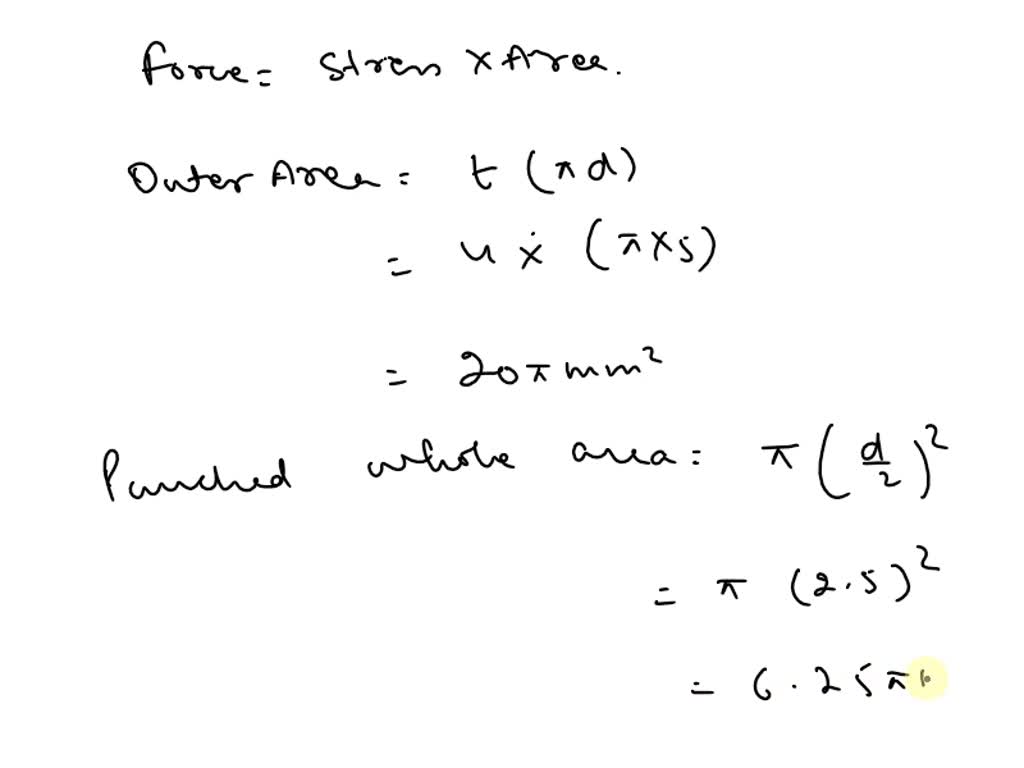 Force = Stress × Area.
Outer Area = t (π d)
= 4 × (π × 5)
= 20 π mm²
Punched whole area = π (d/2)²
= π (2.5)²
= 6.25 π